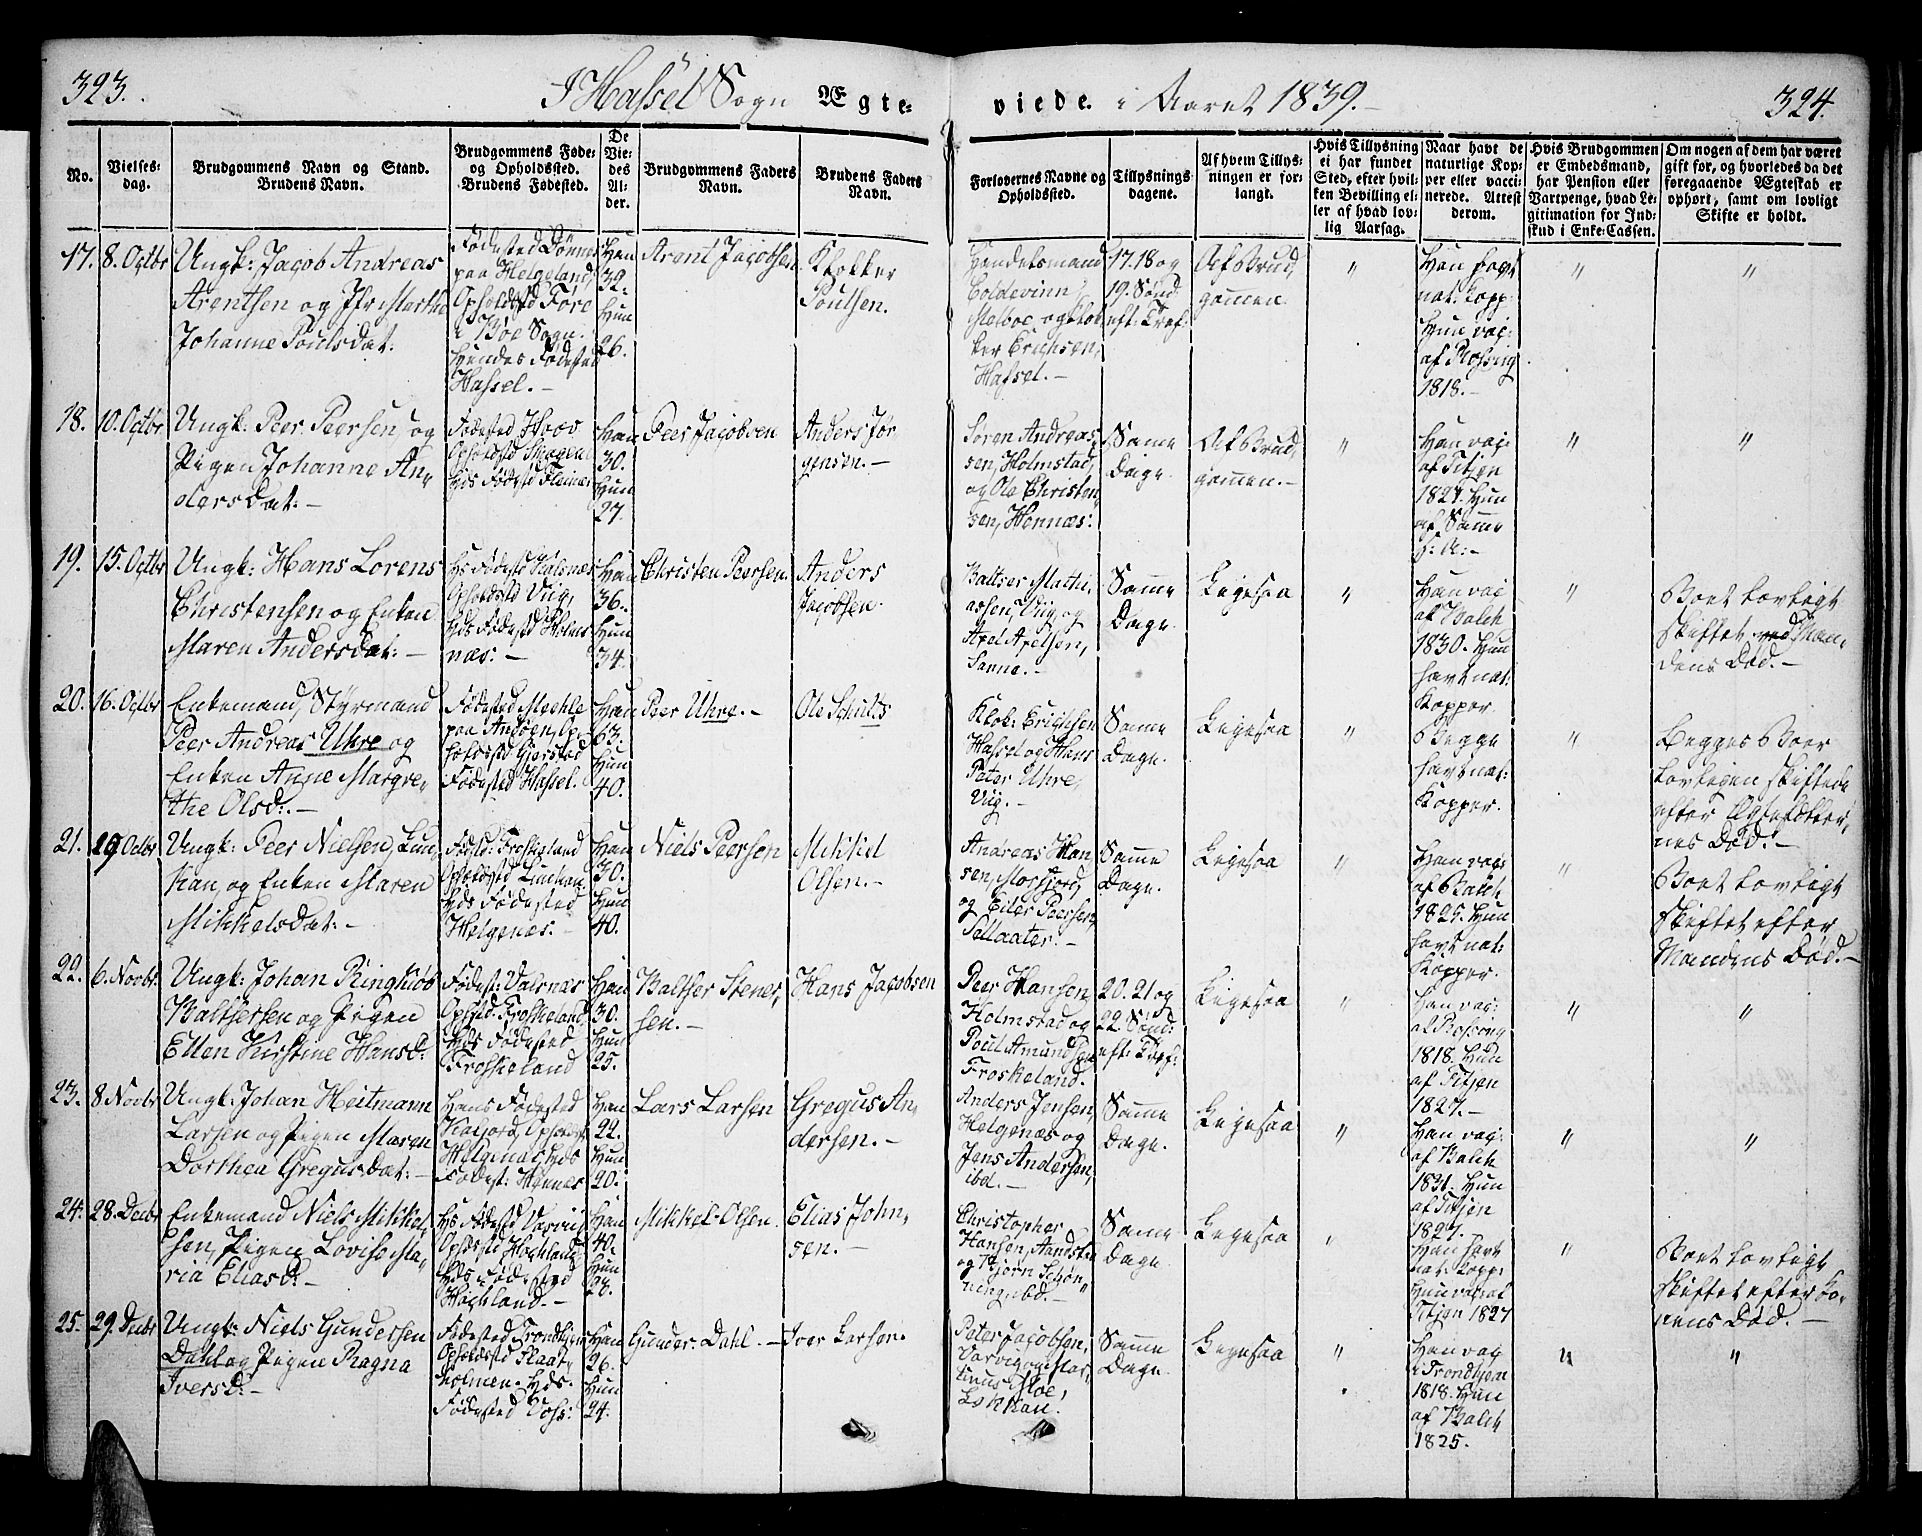 323.
I Hassel Sogn Ægte-
viede i Aaret 1839.-
324.
No.
Vielses-
dag.
Brudgommens Navn og Stand.
Brudens Navn.
Brudgommens Føde-
og Opholdsted.
Brudens Fødested.
De
Vie-
des
Al-
der.
Brudgommens Faders
Navn.
Brudens Faders
Navn.
Forlovernes Navne og
Opholdssted.
Tillysnings
dagene.
Af hvem Tillys-
ningen er for-
langt.
Hvis Tillysning
ei har fundet
Sted, efter hvil-
ken Bevilling el-
ler af hvad lov-
lig Aarsag.
Naar havt de
naturlige Kop-
per eller vacci-
nerede. Attest
derom.
Hvis Brudgommen
er Embedsmand,
har Pension eller
Vartpenge, hvad Le-
gitimation for Ind-
skud i Enke-Cassen.
Om nogen af dem har været
gift før, og hvorledes da det
foregaaende Ægteskab er
ophørt, samt om lovligt
Skifte er holdt.
17. 8. Octbr
Ungk: Jacob Andreas
Arentsen og Jfr Marthe
Johanne Poulsdat:
Fødested Dønnes
paa Helgeland,
Opholdsted Føre
i Bøe Sogn.
Hendes Fødested
Hassel.-
Han
39.
Hun
26.
Arent Jacobsen
Klokker
Poulsen.
Handelsmand
Coldevinn,
Melboe, og Klok-
ker Erichsen,
Hassel.-
17. 18 og
19. Sønd:
eft: Tref:
Af Brud,
gommen
"
Han havt
nat: Kopp:
Hun vac:
af Rossing
1818.-
"
"
18. 10. Octbr
Ungk: Peer Peersen, og
Pigen Johanne An-
dersdat:-
Fødested Hoov
Opholdsted Skagen
Hds Fødested Fleinæs
Han
30.
Hun
27.
Peer Jacobsen
Anders Jør
gensen.-
Søren Andreas,
sen, Holmstad,
og Ole Christen,
sen, Hennæs:
Samme
Dage.
Af Brud,
gommen.-
"
Han vac:
af Titjen
1827. Hun
af Samme
s: A:-
"
"
19. 15. Octbr
Ungk: Hans Lorens
Christensen og Enken
Maren Andersdat:-
Hs Fødested Kalsnæs
Opholdsted Viig,
Hds Fødested Holms
næs:-
Han
36.
Hun
34.
Christen Peersen.
Anders
Jacobsen.
Baltser Mathi-
assen, Viig, og
Axel Axelsen,
Sanne.-
Samme
Dage.
Ligesaa
"
Han vac
af Balch
1830. Hun
havt nat:
Kopper.
"
Boet lovligt
skiftet ved Man-
dens Død.-
20. 16. Octbr
Enkemand, Styrmand
Peer Andreas Uhre og
Enken Anne Margre,
the Olsd:-
Fødested Mechle
paa Andøen, Op-
holdssted Gjersted
Fødested Hassel.
Han
63.
Hun
40.
Peer Uhre.-
Ole Schults
Klok: Erichsen
Hassel og Hans
Peter Uhre,
Viig.-
Samme
Dage.
Ligesaa
"
Begge
havt nat:
Kopper.
"
Begges Boer
lovligen skiftede
efter Ægtefæller,
nes Død.-
21. 19 Octbr
Ungk: Peer Nielsen, Lun,
kan, og Enken Maren
Mikkelsdat:-
Fødsd: Froskeland
Opholdsted Lunkan
Hds Fødested
Helgenæs:-
Han
30.
Hun
40.
Niels Peersen
Mikkel
Olsen.-
Andreas Han
sen, Morfjord,
og Eiler Peersen,
Pollaater.-
Samme
Dage.
Ligesaa
"
Han vac:
af Balch
1825. Hun
havt nat:
Kopper.
"
Boet lovligt
skiftet efter
Mandens Død.-
22. 6. Novbr.
Ungk: Johan Ringkiøb
Balthersen og Pigen
Ellen Kirstine Hansd:
Fødest: Valsnæs
Ophstd: Froskeland,
Hds Fødested
Froskeland
Han
30.
Hun
25.
Baltser Stener,
sen.-
Hans Jacobsen
Peer Hansen
Holmstad og
Poul Amundsen
Froskeland.
20. 21 og
22. Sønd:
eft: Tref:
Ligesaa
"
Han vac:
af Rossing
1818. Hun
af Titjen
1827.-
"
"
23. 8 Novbr
Ungk: Johan Heitmann
Larsen og Pigen Maren
Dorthea Gregusdat:-
Hans Fødested
Kaljord, Opholdst
Helgenæs, Hds
Fødest: Hennes
Han
22.
Hun
20.
Lars Larsen
Gregus An,
dersen.-
Anders Jensen,
Helgenæs og
Jens Andersen,
ibd.-
Samme
Dage.
Ligesaa
"
Han vac:
af Balch
1831. Hun
af Titjen
1827.
"
"
24. 28. Decbr
Enkemand Niels Mikkel,
sen, Pigen Lovise Ma,
ria Eliasd:-
Hs Fødested Varviig
Opholdsted Hockland,
Hds Fødested
Hockland.-
Han
40.
Hun
28.
Mikkel Olsen.
Elias John,
sen.-
Christopher
Hansen, Sandsten
og Bjørn Schøn,
ningubd.-
Samme
Dage
Ligesaa
"
Han havt
nat: Kopp:
Hun vac: af
Titjen 1827
"
Boet lovligt
skiftet efter Ko,
nens Død.-
25. 29. Decbr
Ungk: Niels Gundersen
Dahl og Pigen Ragna
Iversd:-
Fødested Trondhjem
Opholdsted Flaat,
holmen. Hds.
Fødested Voss:
Han
26.
Hun
24.
Gunder: Dahl.-
Iver Larsen.
Peter Jacobsen,
Varvig og Mar,
tinus Moe,
Lokkan.
Samme
Dage.
Ligesaa
"
Han vac
i Trondhjem
1818. Hun
af Balch
1825.
"
"